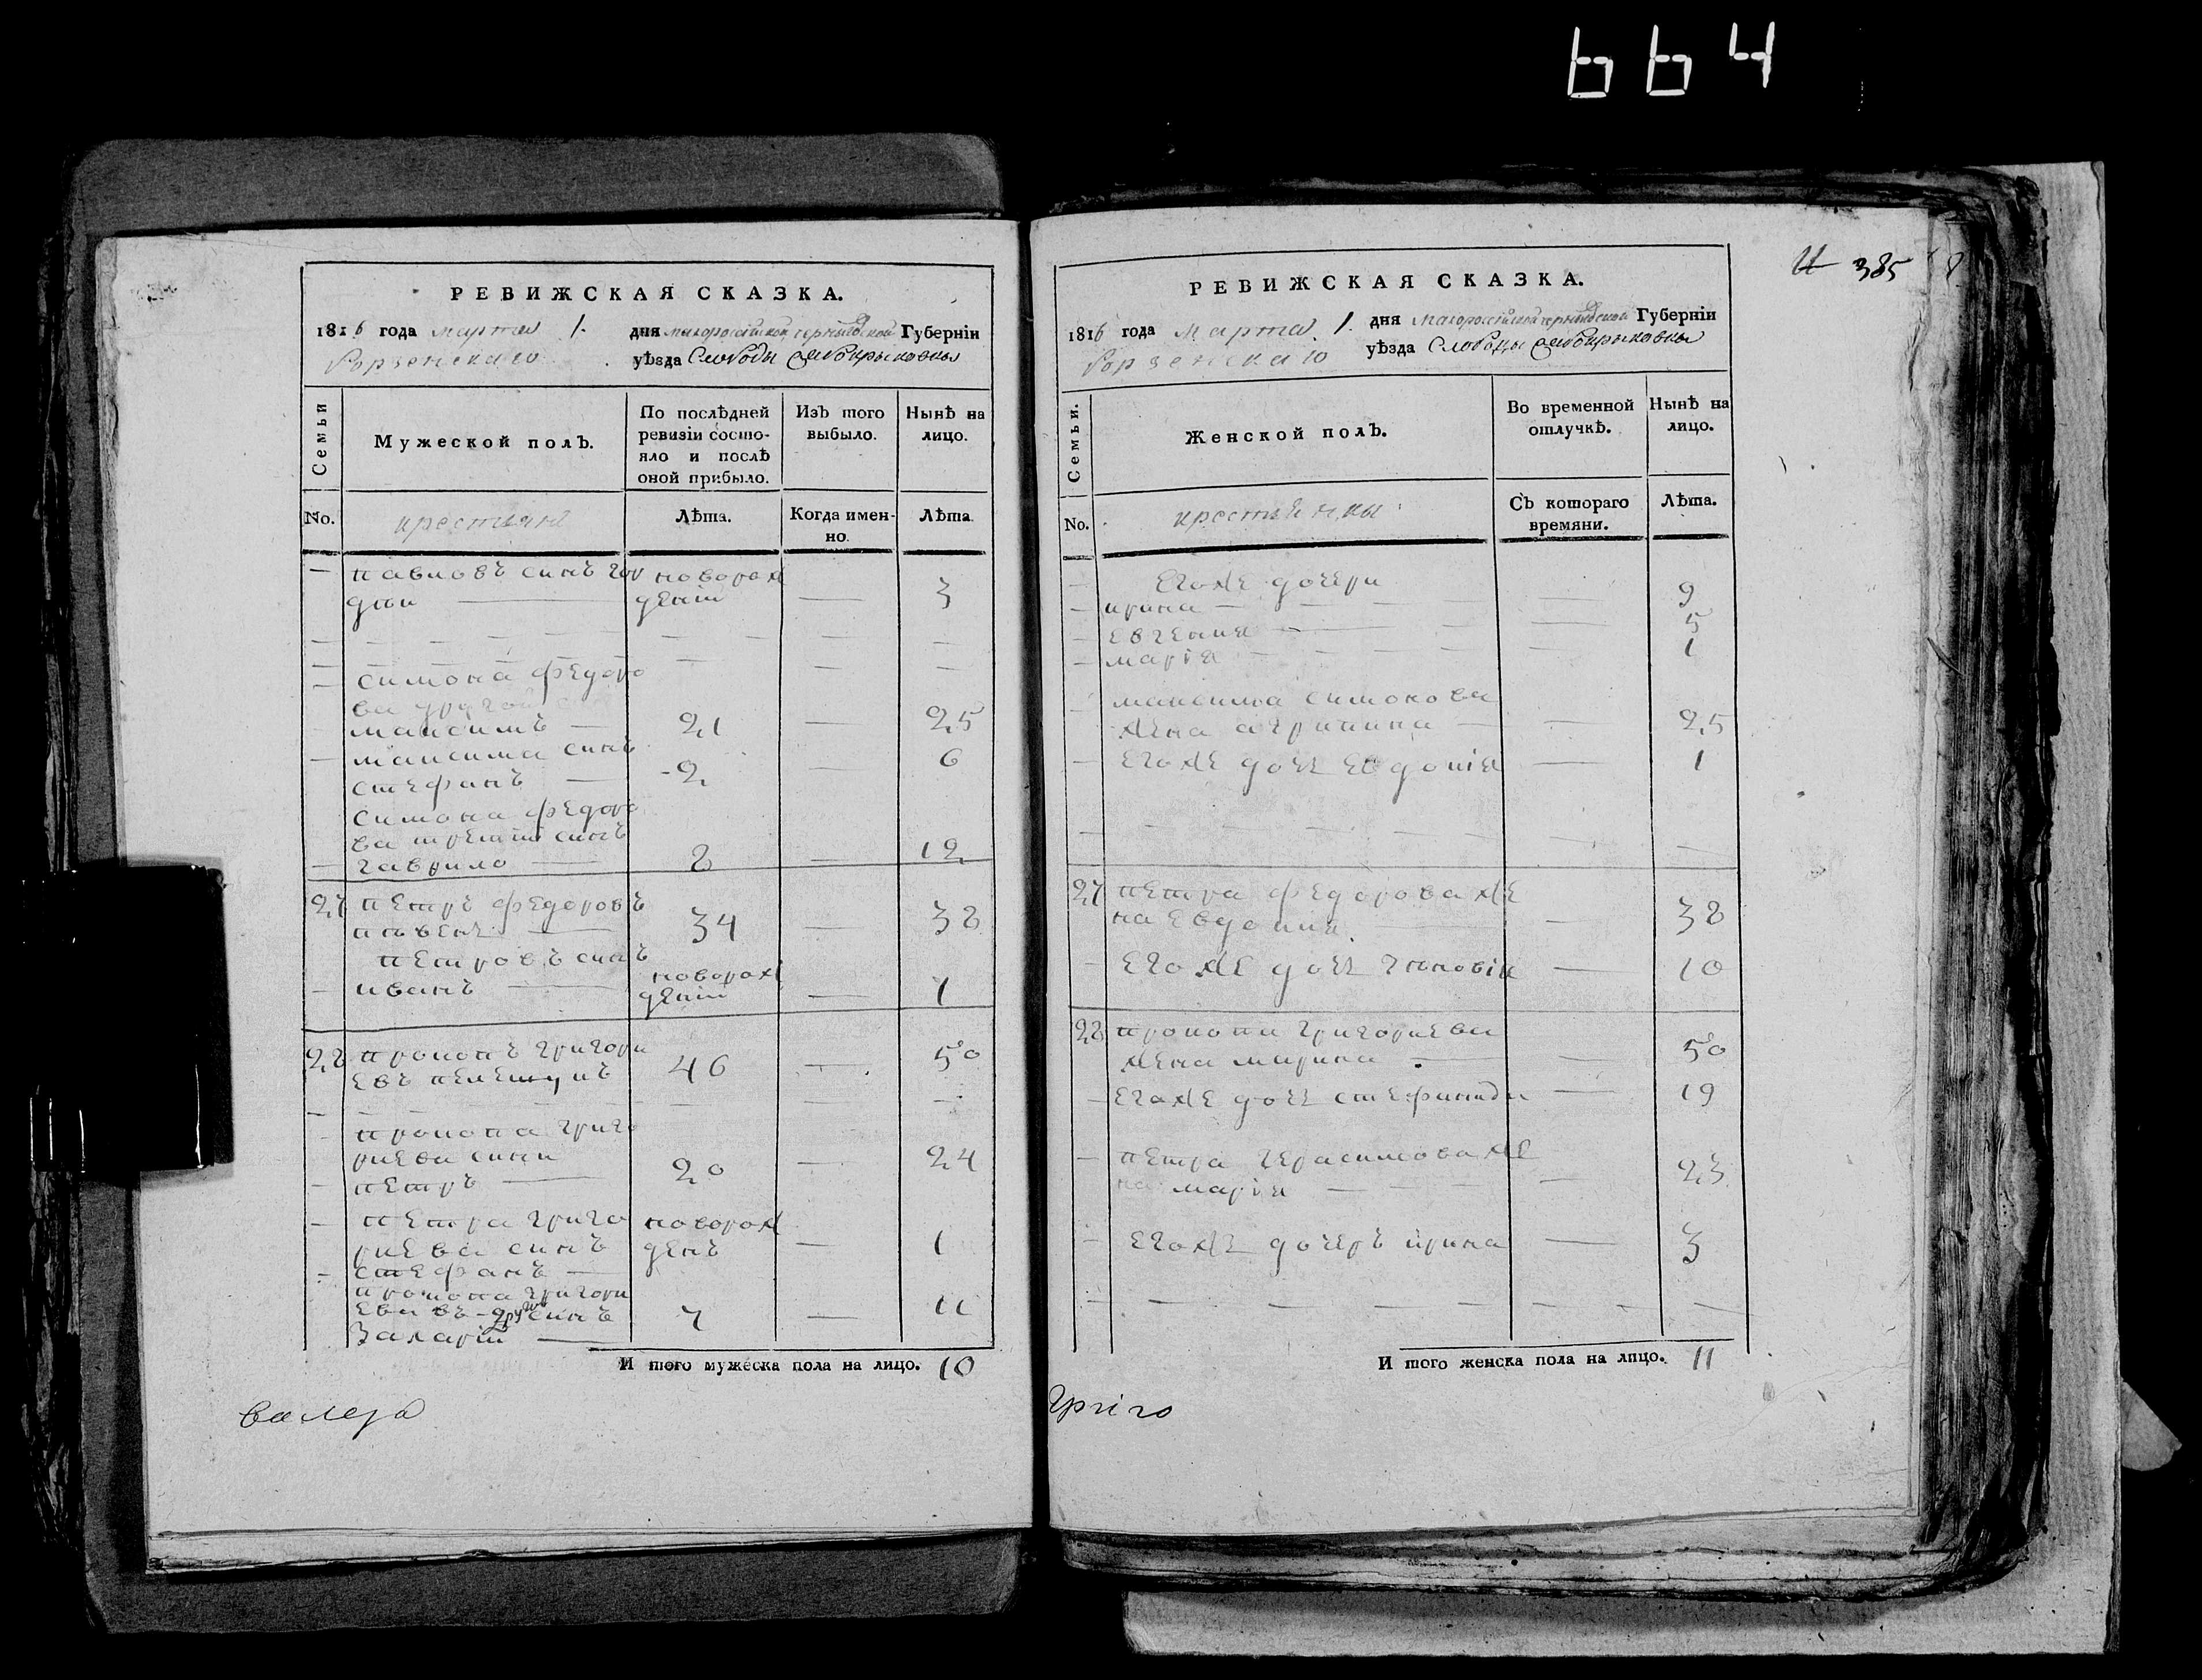 664
РЕВИЖСКАЯ СКАЗКА.
1816 года марта 1. дня малороссійской черниговской Губерніи
Борзенскаго уѣзда Слободы
Семьи
Мужеской полъ.
По послѣдней ревизіи состо-
яло и послѣ
оной прибыло.
Изъ того
выбыло.
Нынѣ на
лицо.
No.
крестьяне
Лѣта.
Когда имен-
но.
Лѣта.
павловъ синъ гор новорож
дѣй — деній — 3
симона федоро
ва другой
максимъ — 21 — 25
максима синъ
стефанъ — 2 — 6
симона федоро
ва третій синъ
гаврило — 8 — 12
27 петръ федоровъ
34 — 38
петровъ синъ
иванъ — новорож
деній — 1
28 прокопъ григори
евъ 46 — 50
прокопа григо
риева сини
петръ — 20 — 24
петра григо новорож
риева синъ денъ — 1
стефанъ —
прокопа григори
ева въ-другой синъ 7 — 11
Захарій —
И того мужеска пола на лицо. 10
385
РЕВИЖСКАЯ СКАЗКА.
1816 года марта 1. дня малороссійской черниговской Губерніи
Борзенскаго уѣзда Слободы
Семьи.
Женской полъ.
Во временной
отлучкѣ.
Нынѣ на
лицо.
No.
крестьянки
Съ котораго
времяни.
Лѣта.
егоже дочери
ирина — 9
евгения — 5
марія — 1
максима симонова
жена агрипина — 25
егоже дочь евдокія — 1
27 петра федорова же
на евдокия — 38
егоже дочь — 10
28 прокопа григориева
жена марина — 50
егоже дочь стефанида — 19
петра герасимова же
на марія — 23
егоже дочеръ ирина — 3
И того женска пола на лицо. 11
григо